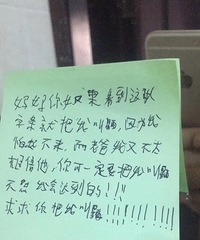 妈妈你如果看到这张
字条就把我叫醒,因为我
怕起不来,而老爸我又不太
相信他,你可一定要把我叫醒
不然我会迟到的!!!
求求你把我叫醒!!!!!!!!!